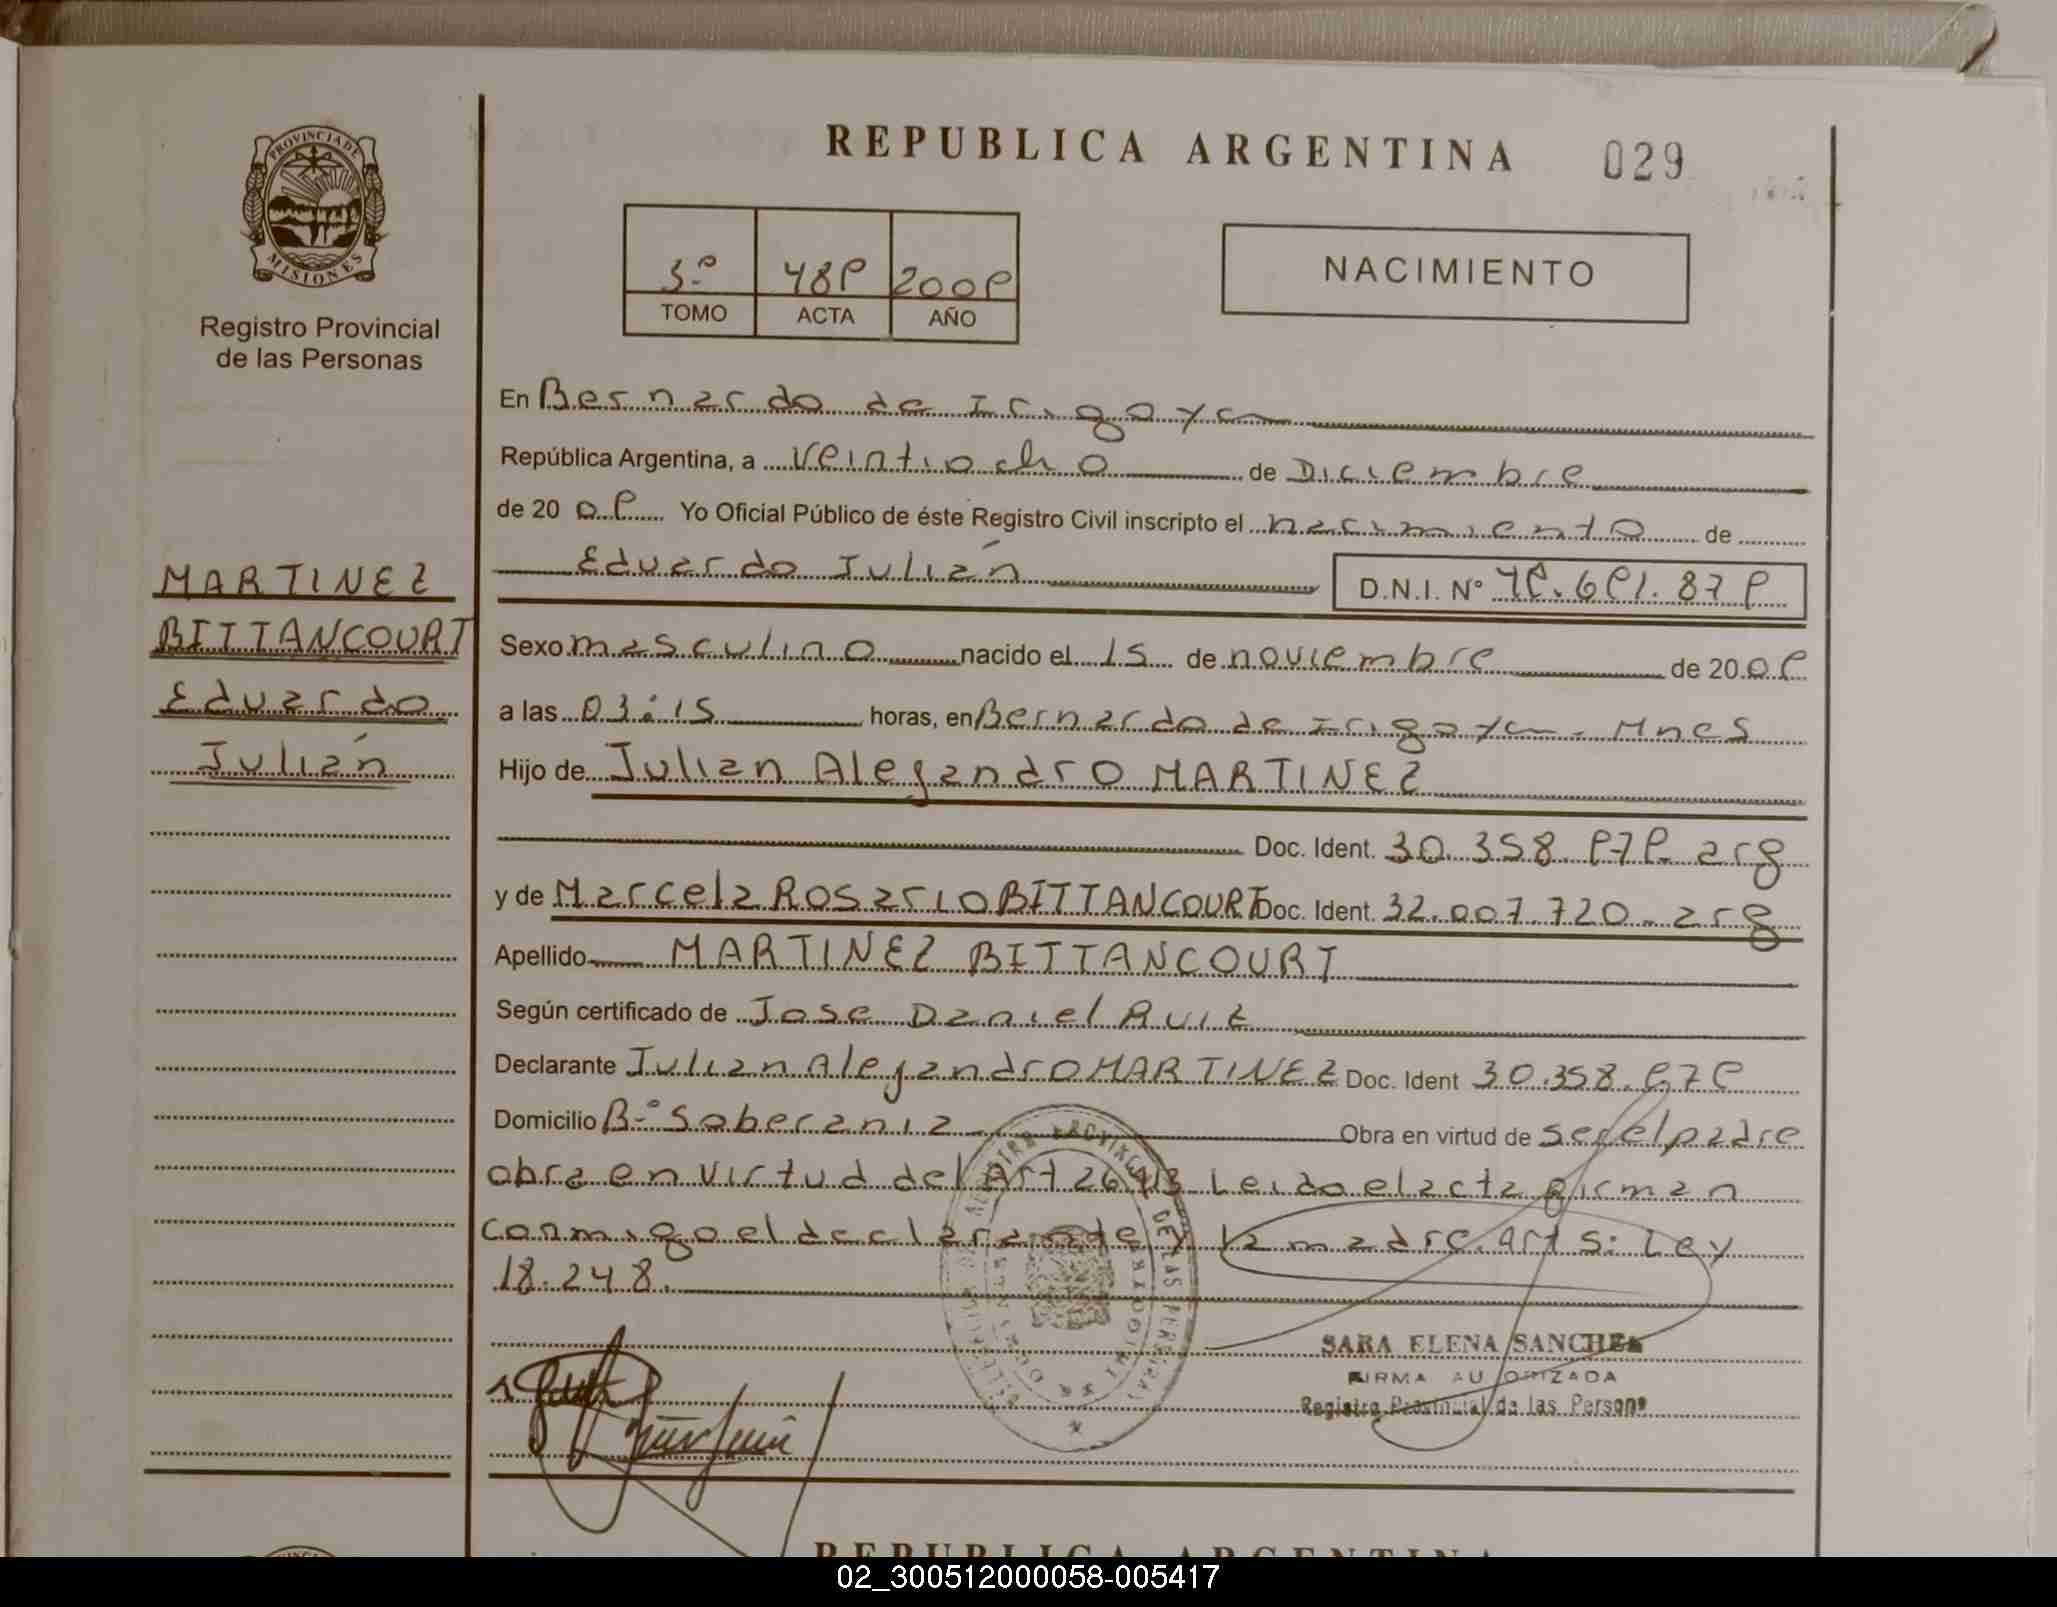 REPUBLICA ARGENTINA 029
PROVINCIA DE
MISIONES
Registro Provincial
de las Personas
3º 489 2009
TOMO ACTA AÑO
NACIMIENTO
En Bernardo de Irigoyen
República Argentina, a veintiocho de Diciembre
de 20 09 Yo Oficial Público de éste Registro Civil inscripto el nacimiento de
Eduardo Julián D.N.I. Nº 49.691.879
MARTINEZ
BITTANCOURT
Eduardo
Julián
Sexo masculino nacido el 15 de noviembre de 20 09
a las 03:15 horas, en Bernardo de Irigoyen - Mnes
Hijo de Julian Alejandro MARTINEZ
Doc. Ident. 30.358.979 arg
y de Marcela Rosario BITTANCOURT Doc. Ident. 32.007.720 - arg
Apellido MARTINEZ BITTANCOURT
Según certificado de Jose Daniel Ruiz
Declarante Julian Alejandro MARTINEZ Doc. Ident 30.358.979
Domicilio Bº Soberania Obra en virtud de ser el padre
obra en virtud del Art 264B Leido el acta firman
conmigo el declarante y la madre. Art 5: Ley
18.248.
SARA ELENA SANCHEZ
FIRMA AUTORIZADA
Registro Provincial de las Personas
REPUBLICA ARGENTINA
02_300512000058-005417